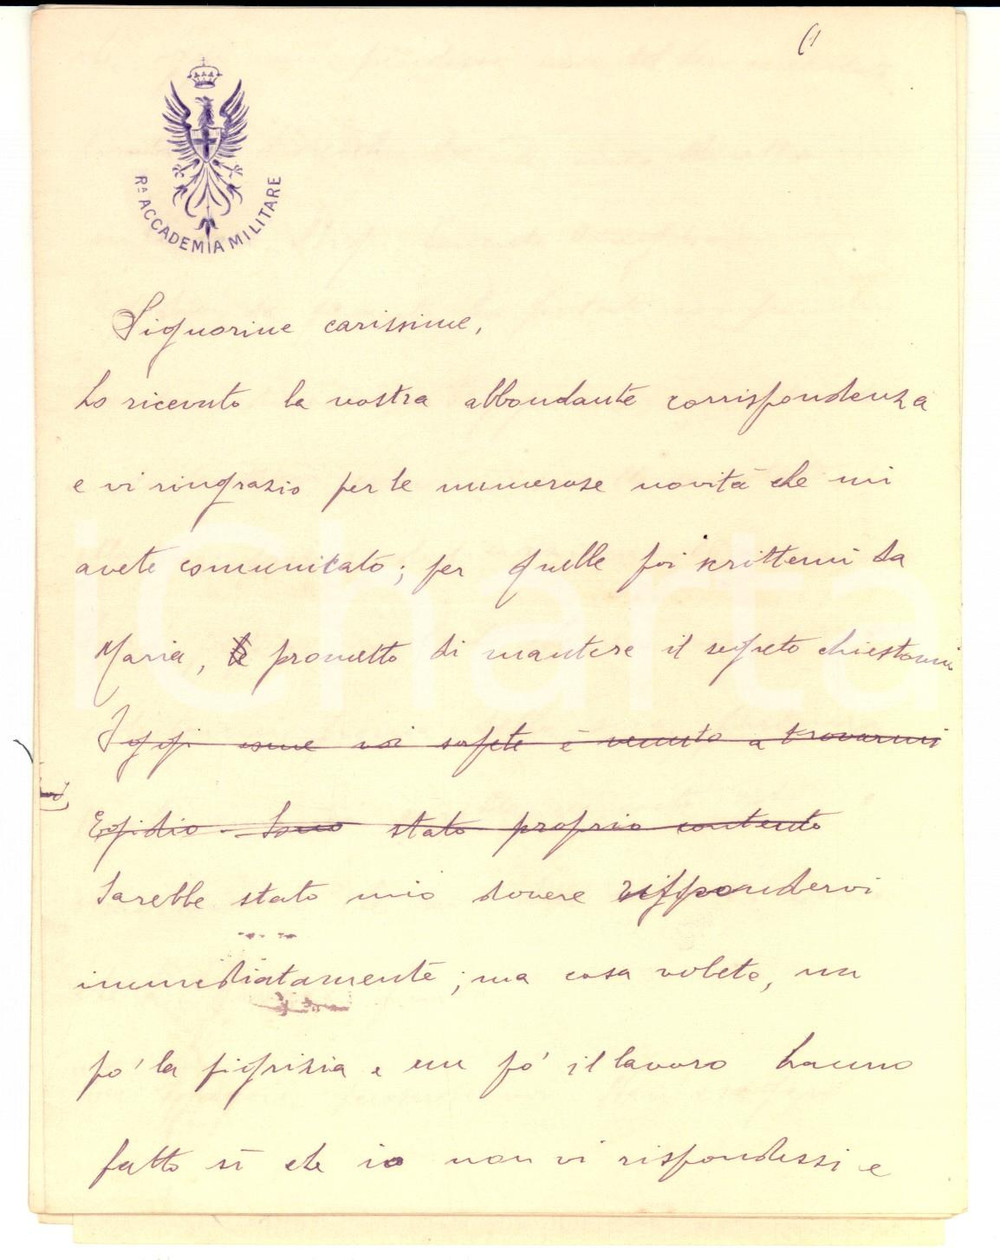 Rª ACCADEMIA MILITARE
Signorine carissime,
ho ricevuto la vostra abbondante corrispondenza
e vi ringrazio per le numerose novità che mi
avete comunicato; per quelle poi scrittemi da
Maria, prometto di mantere il segreto chiestomi
come voi sapete è venuto a trovarmi
Egidio. Sono stato proprio contento
Sarebbe stato mio dovere rispondervi
immediatamente; ma cosa volete, un
po' la pigrizia e un po' il lavoro hanno
fatto sì che io non vi rispondessi e
iCharta